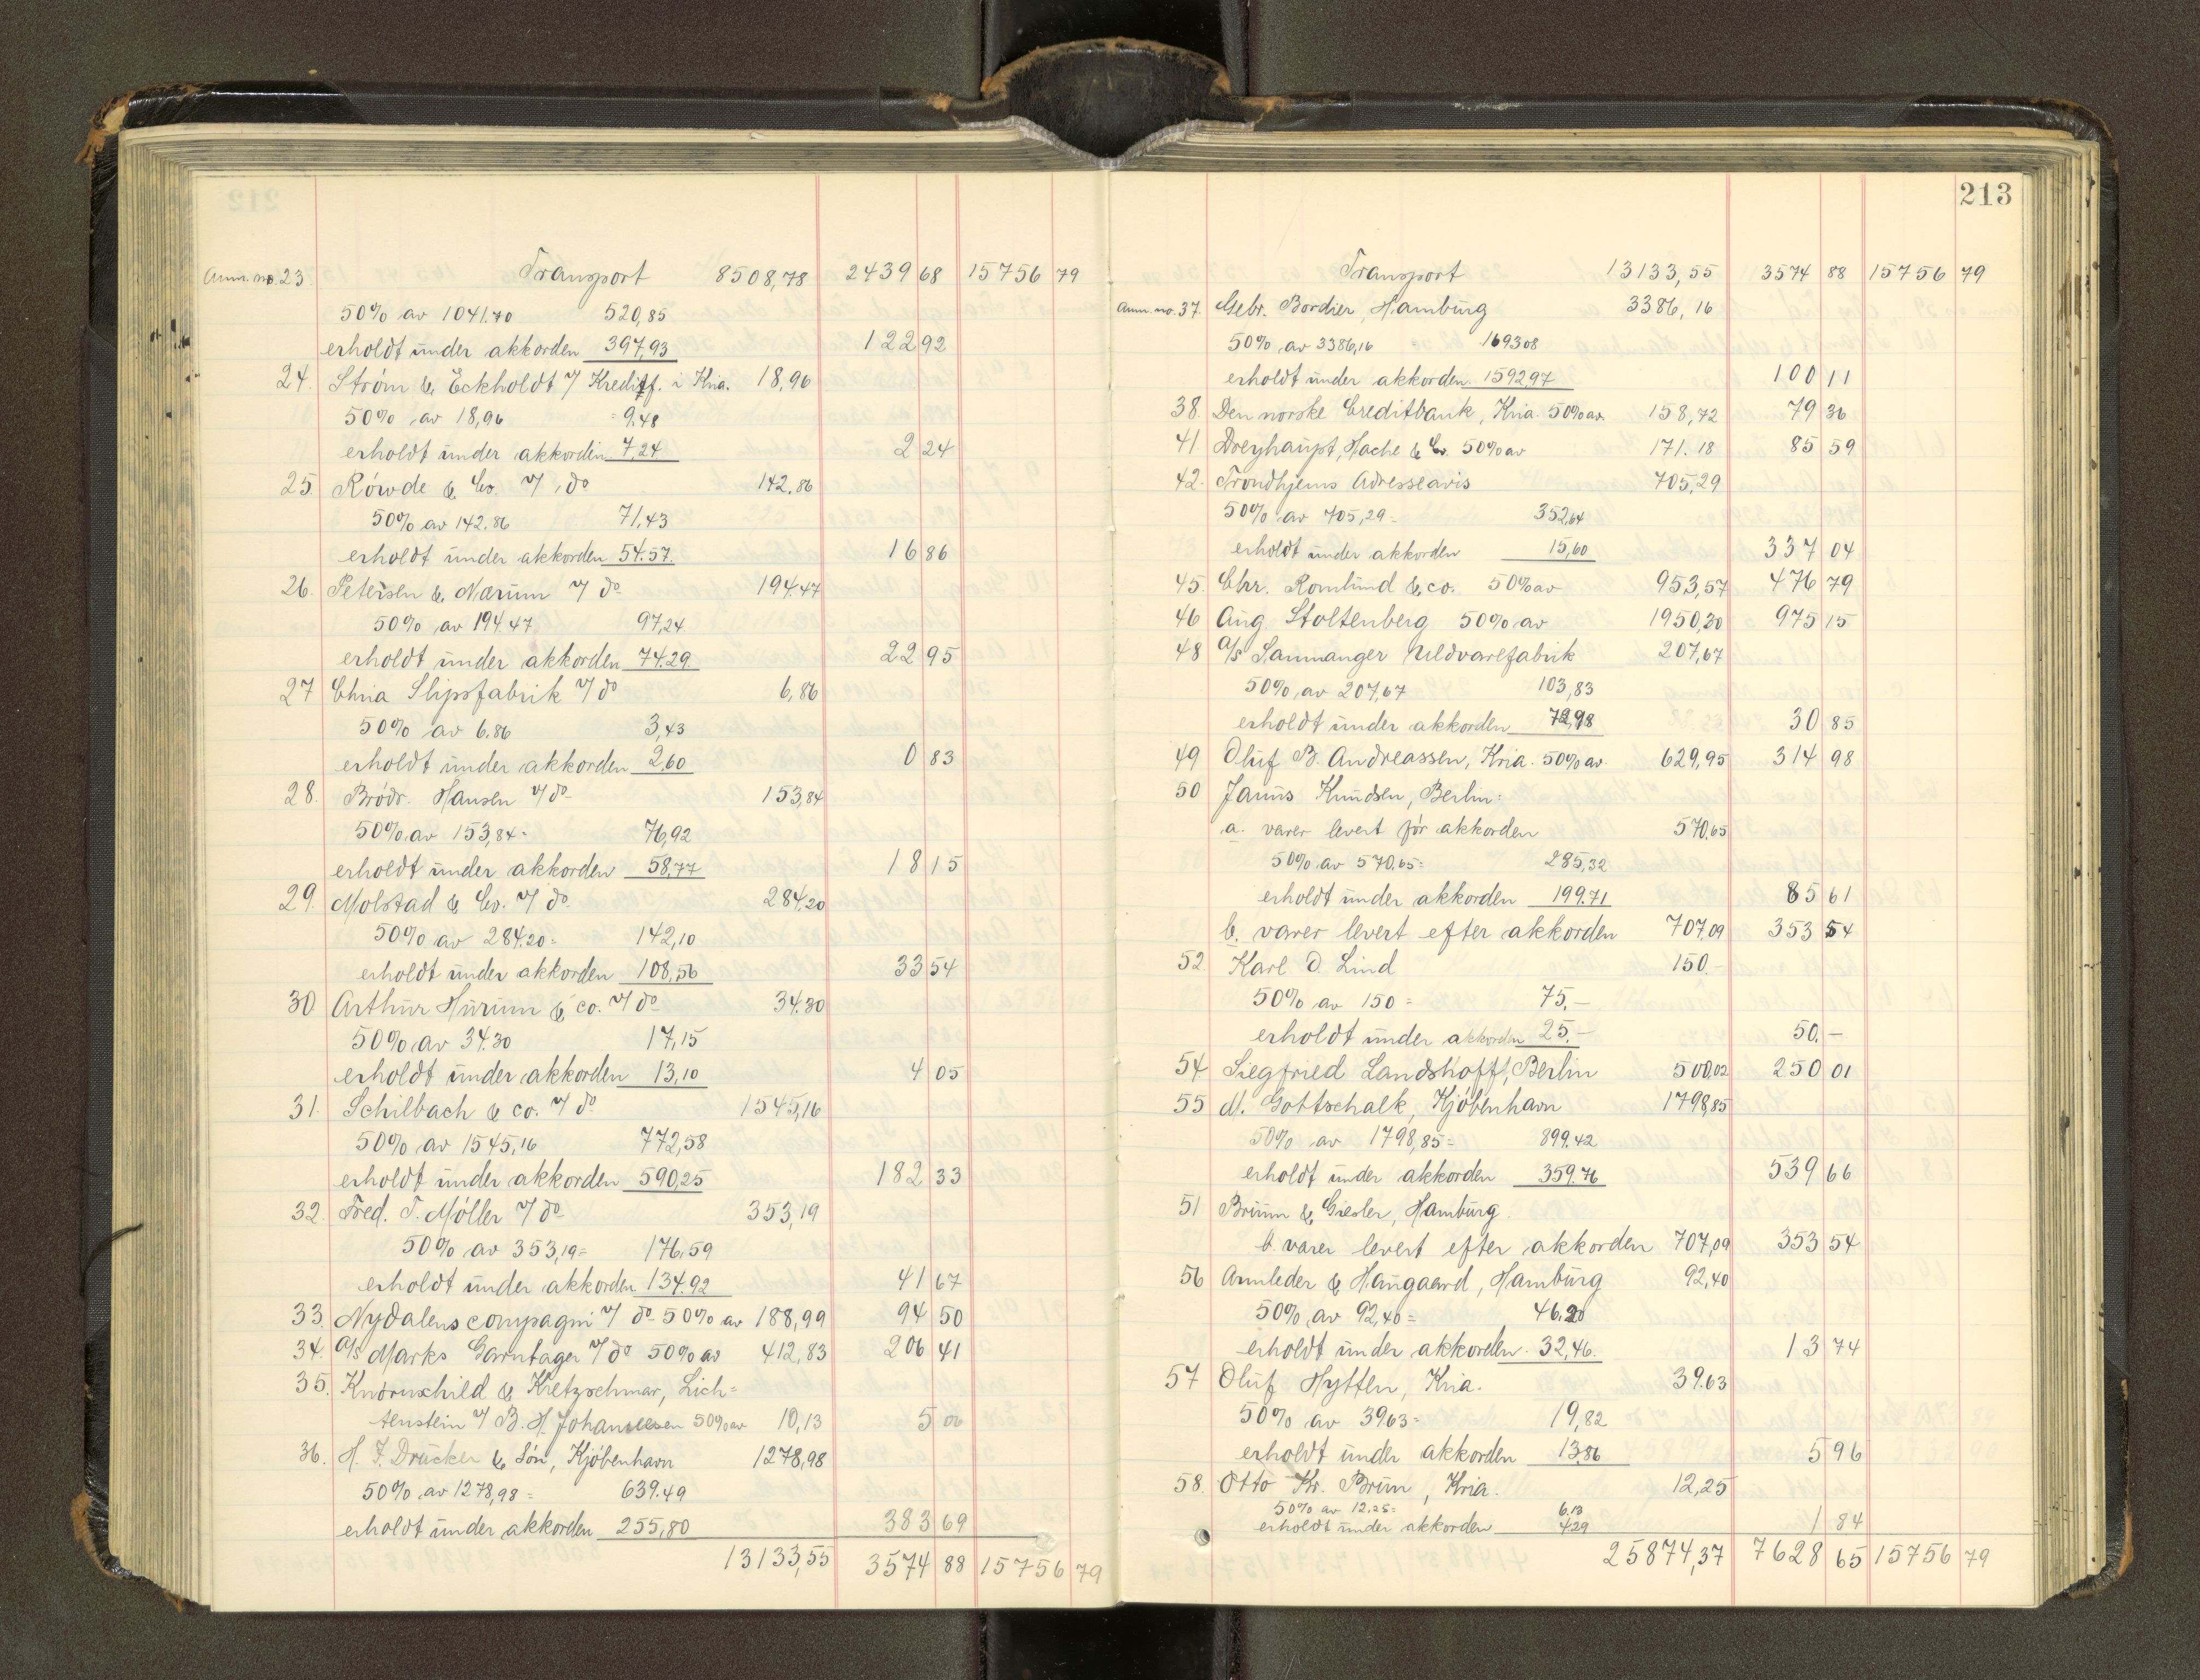 Anm. no. 23. Transport 8508,78 2439 68 15756 79
50% av 1041.70 520,85
erholdt under akkorden 397,93 122 92
24. Strøm & Eckholdt v/ Kreditf. i Kria. 18,96
50% av 18,96 = 9.48
erholdt under akkorden 7,24 2 24
25 Røwde & Co. v/ do 142.86
50% av 142.86 71,43
erholdt under akkorden 54.57. 16 86
26. Petersen & Nærum v/ do 194.47
50% av 194.47 97,24
erholdt under akkorden 74.29. 22 95
27 Chria Slipsfabrik v/ do 6,86
50% av 6.86 3,43
erholdt under akkorden 2,60 0 83
28. Brødr. Hansen v/ do 153,84
50% av 153,84 = 76,92
erholdt under akkorden 58,77 18 15
29. Molstad & Co. v/ do 284,20
50% av 284.20 = 142,10
erholdt under akkorden 108,56 33 54
30 Arthur Hurum & co. v/ do 34.30
50% av 34.30 17,15
erholdt under akkorden 13,10 4 05
31. Schilbach & co. v/ do 1545,16
50% av 1545,16 772,58
erholdt under akkorden 590,25 182 33
32. Fred. T. Møller v/ do 353,19
50% av 353,19 = 176,59
erholdt under akkorden 134.92 41 67
33. Nydalens compagni v/ do 50% av 188,99 94 50
34. A/s Marks Garnlager v/ do 50% av 412,83 206 41
35. Knørnschild & Kretzschmar, Lich=
tenstein v/ B. H. Johannesen 50% av 10,13 5 00
36. H. F. Drücker & Søn, Kjøbenhavn 1278,98
50% av 1278,98 = 639.49
erholdt under akkorden 255,80 383 69
13133,55 3574 88 15756 79
213
Transport 13133,55 3574 88 15756 79
Anm. no. 37. Gebr. Bordier, Hamburg 3386,16
50% av 3386,16 = 169308
erholdt under akkorden 159297 100 11
38. Den norske Creditbank, Kria. 50% av 158,72 79 36
41 Dreyhaupt, Hache & Co. 50% av 171.18 85 59
42. Trondhjems Adresseavis 705,29
50% av 705,29 = 352,64
erholdt under akkorden 15,60 337 04
45. Chr. Romlund & co. 50% av 953,57 476 79
46 Aug. Stoltenberg 50% av 1950,30 975 15
48 A/s Samnanger Uldvarefabrik 207,67
50% av 207,67 103,83
erholdt under akkorden 72,98 30 85
49 Oluf B. Andreassen, Kria. 50% av 629,95 314 98
50 Janus Knudsen, Berlin:
a. varer levert før akkorden 570.65
50% av 570.65 = 285,32
erholdt under akkorden 199.71 85 61
b. varer levert efter akkorden 707,09 353 54
52. Karl O. Lind 150.-
50% av 150 = 75,-
erholdt under akkorden 25.- 50.-
54 Siegfried Landshoff, Berlin 500,02 250 01
55 M. Gottschalk, Kjøbenhavn 1798,85
50% av 1798,85 = 899.42
erholdt under akkorden 359.76 539 66
51 Bruun & Giesler, Hamburg.
b. varer levert efter akkorden 707,09 353 54
56 Annleder & Haugaard, Hamburg 92,40
50% av 92,40 = 46.20
erholdt under akkorden 32,46. 13 74
57 Oluf Hytten, Kria. 39.63
50% av 39.63 = 19,82
erholdt under akkorden 13,86 5 96
58. Otto Kr. Bruun, Kria. 12,25
50% av 12,25 = 6.13
erholdt under akkorden 4.29 1 84
25874,37 7628 65 15756 79